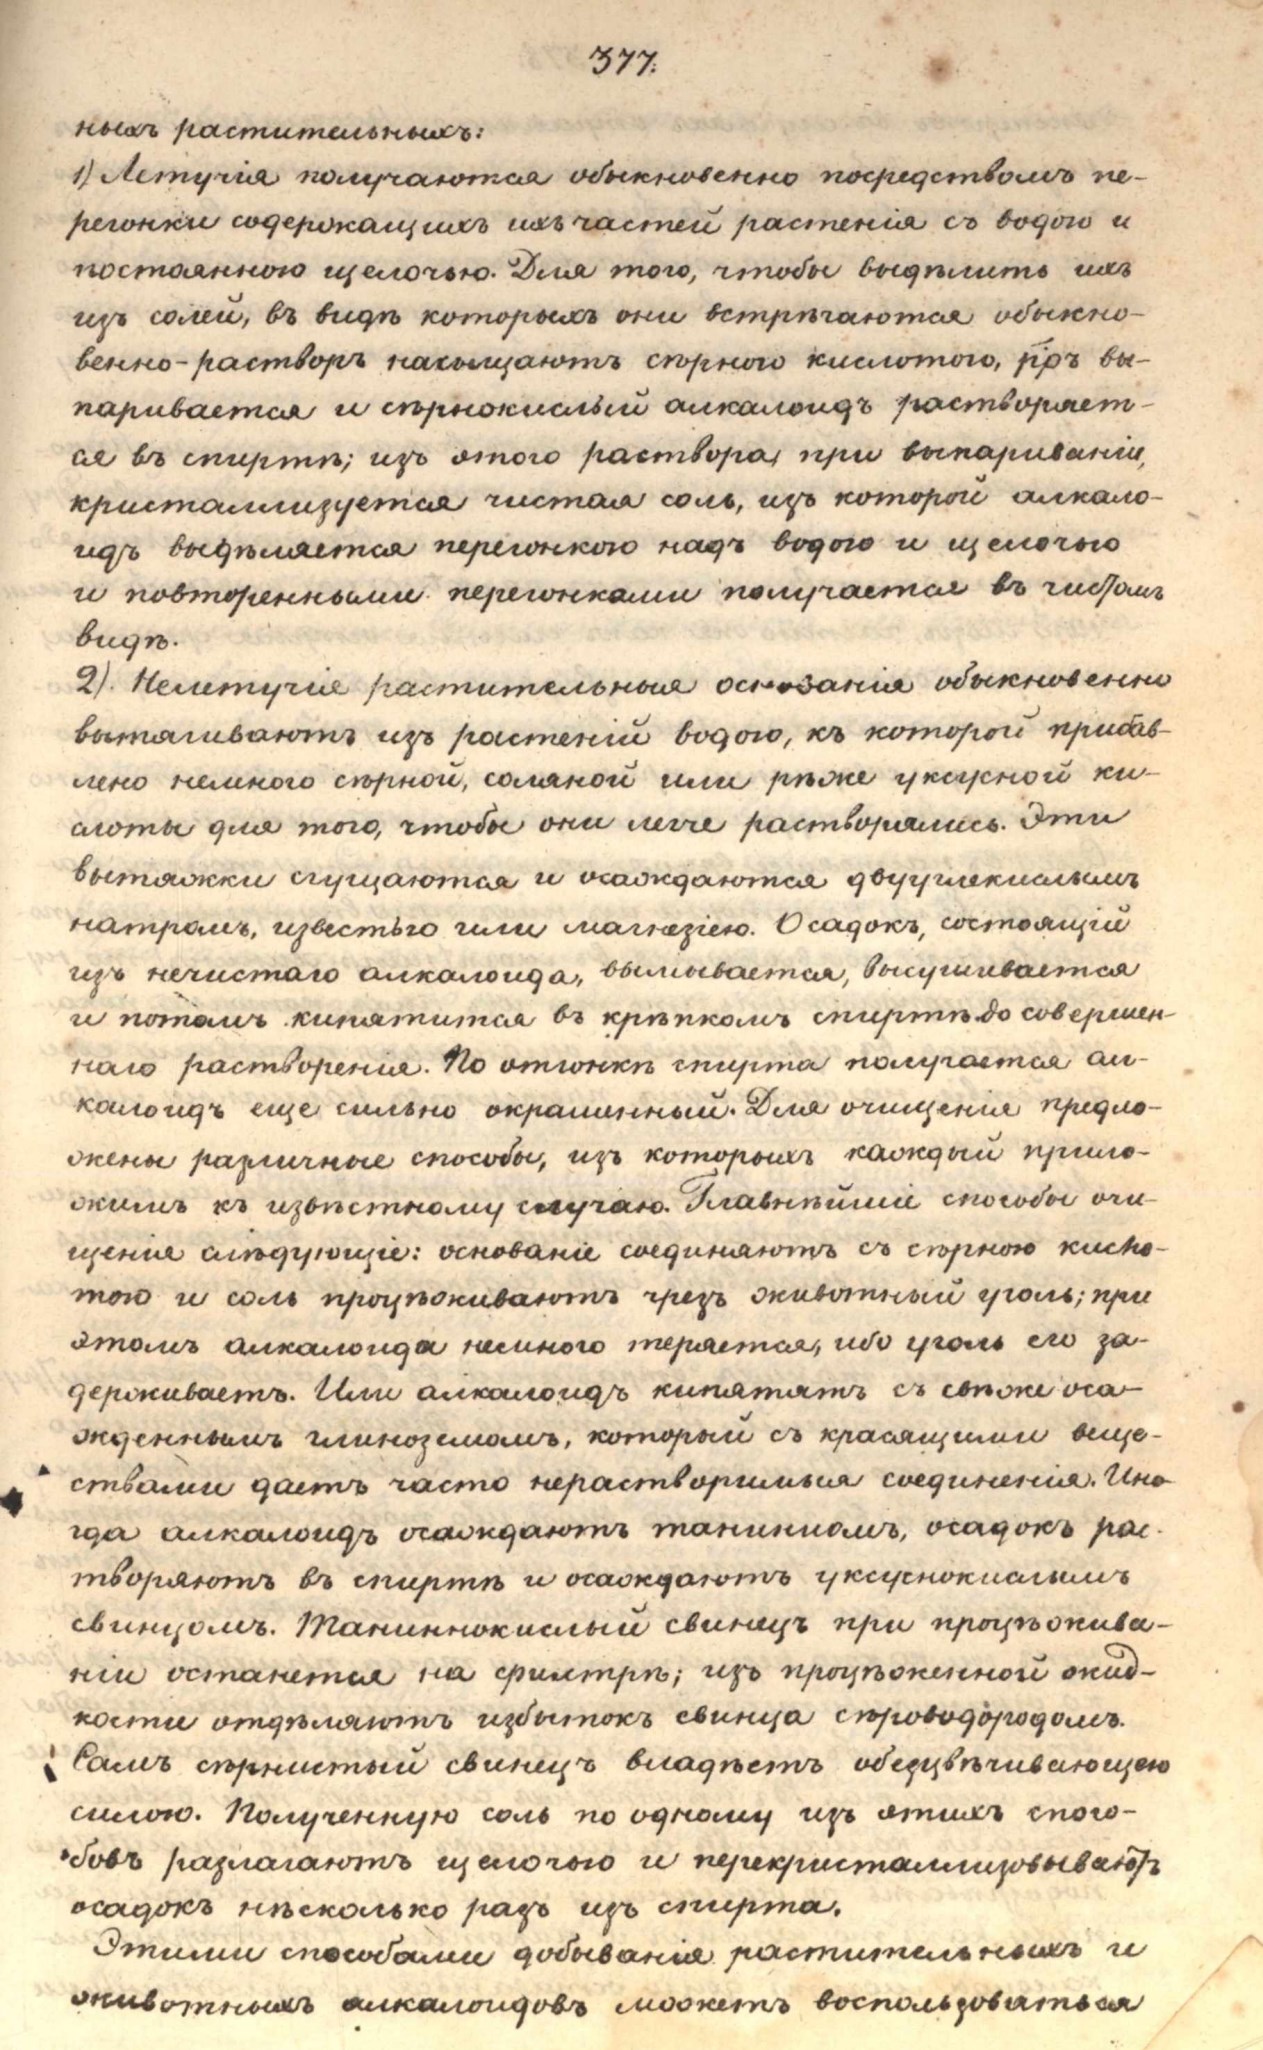 377.
ныхъ растительныхъ:
1) Летучія получаются обыкновенно посредствомъ пе-
регонки содержащихъ ихъ частей растенія съ водою и
постоянною щелочью. Для того, чтобы выдѣлить ихъ
изъ солей, въ видѣ которыхъ они встрѣчаются обыкно-
венно-растворъ насыщаютъ сѣрною кислотою, р̅ръ вы-
паривается и сѣрнокислый алкалоидъ растворяет-
ся въ спиртѣ; изъ этого раствора, при выпариваніи,
кристаллизуется чистая соль, изъ которой алкало-
идъ выдѣляется перегонкою надъ водою и щелочью
и повторенными перегонками получается въ чистомъ
видѣ.
2). Нелетучія растительныя основанія обыкновенно
вытягиваютъ изъ растеній водою, къ которой прибав-
лено немного сѣрной, соляной или рѣже уксусной ки-
слоты для того, чтобы они легче растворялись. Эти
вытяжки сгущаются и осаждаются двууглекислымъ
натромъ, известью или магнезіею. Осадокъ, состоящій
изъ нечистаго алкалоида, вымывается, высушивается
и потомъ кипятится въ крѣпкомъ спиртѣ до совершен-
наго растворенія. По отгонкѣ спирта получается ал-
калоидъ еще сильно окрашенный. Для очищенія предло-
жены различные способы, изъ которыхъ каждый прило-
жимъ къ извѣстному случаю. Главнѣйшіе способы очи-
щенія слѣдующіе: основаніе соединяютъ съ сѣрною кисло-
тою и соль процѣживаютъ чрезъ животный уголь; при
этомъ алкалоида немного теряется, ибо уголь его за-
держиваетъ. Или алкалоидъ кипятятъ съ свѣже оса-
жденнымъ глиноземомъ, который съ красящими веще-
ствами даетъ часто нерастворимыя соединенія. Ино-
гда алкалоидъ осаждаютъ таниниомъ, осадокъ рас-
творяютъ въ спиртѣ и осаждаютъ уксуснокислымъ
свинцомъ. Таниннокислый свинецъ при процѣжива-
ніи останется на филтрѣ; изъ процѣженной жид-
кости отдѣляютъ избытокъ свинца сѣроводородомъ.
Самъ сѣрнистый свинецъ владѣетъ обезцвѣчивающею
силою. Полученную соль по одному изъ этихъ спосо-
бовъ разлагаютъ щелочью и перекристаллизовываютъ
осадокъ нѣсколько разъ изъ спирта.
Этими способами добыванія растительныхъ и
животныхъ алкалоидовъ можетъ воспользоваться